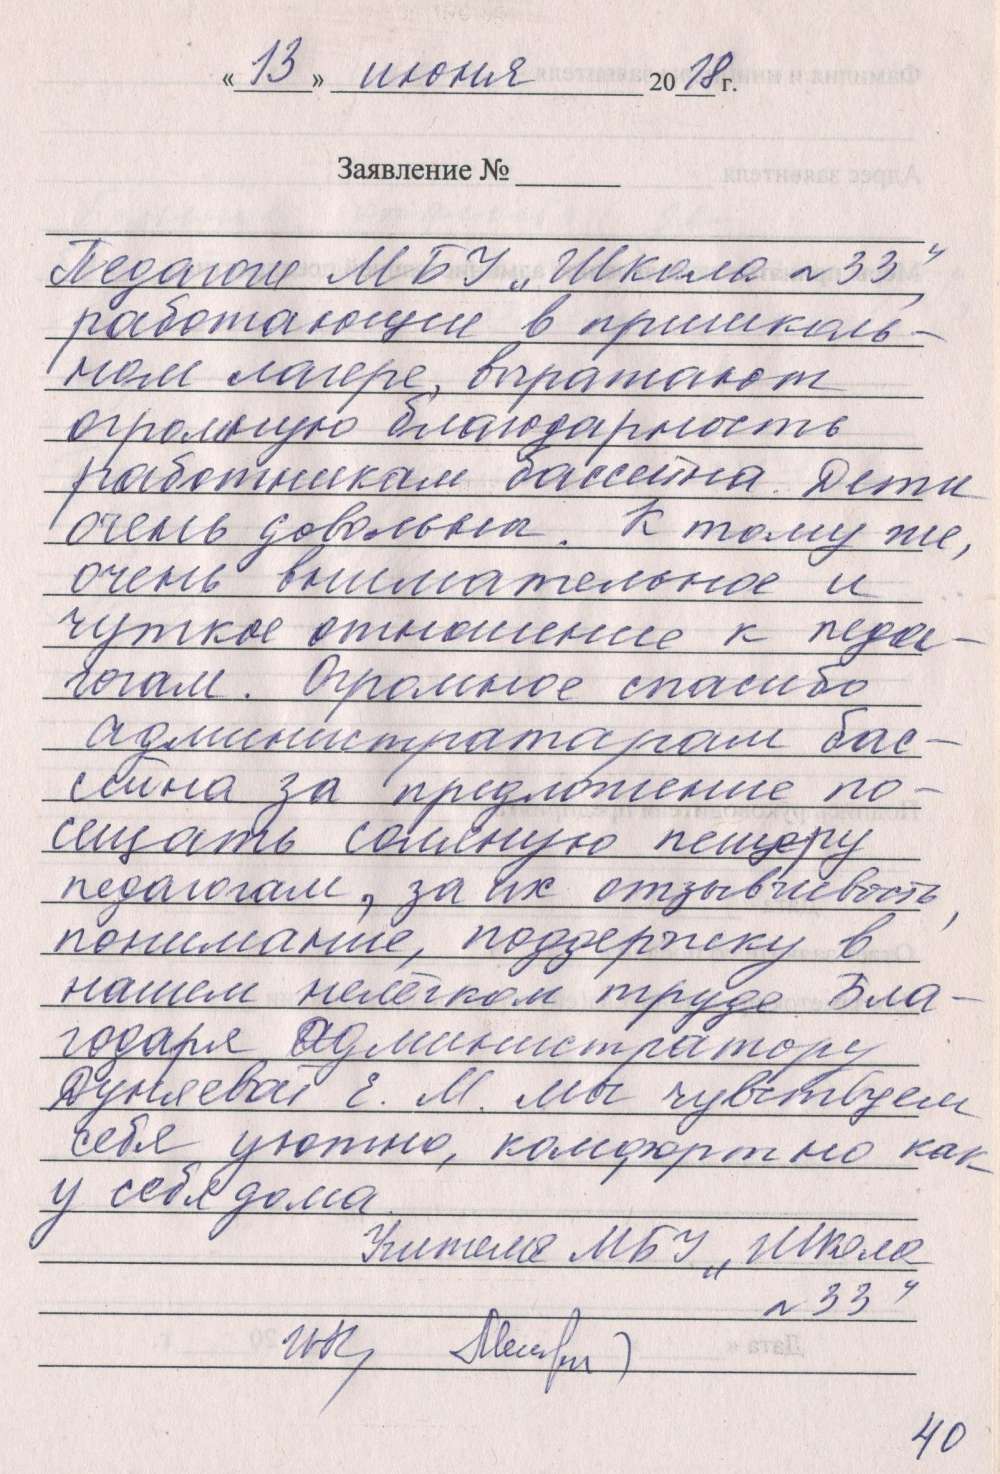 « 13 » июня 2018 г.
Заявление № ______
Педагоги МБУ „Школа №33“,
работающие в пришколь-
ном лагере, выражают
огромную благодарность
работникам бассейна. Дети
очень довольны. К тому же,
очень внимательное и
чуткое отношение к педа-
гогам. Огромное спасибо
администраторам бас-
сейна за предложение по-
сещать соляную пещеру
педагогам, за их отзывчивость,
понимание, поддержку в
нашем нелёгком труде. Бла-
годаря администратору
Дуняевой Е. М. мы чувствуем
себя уютно, комфортно как
у себя дома.
Учителя МБУ „Школа
№33“
40